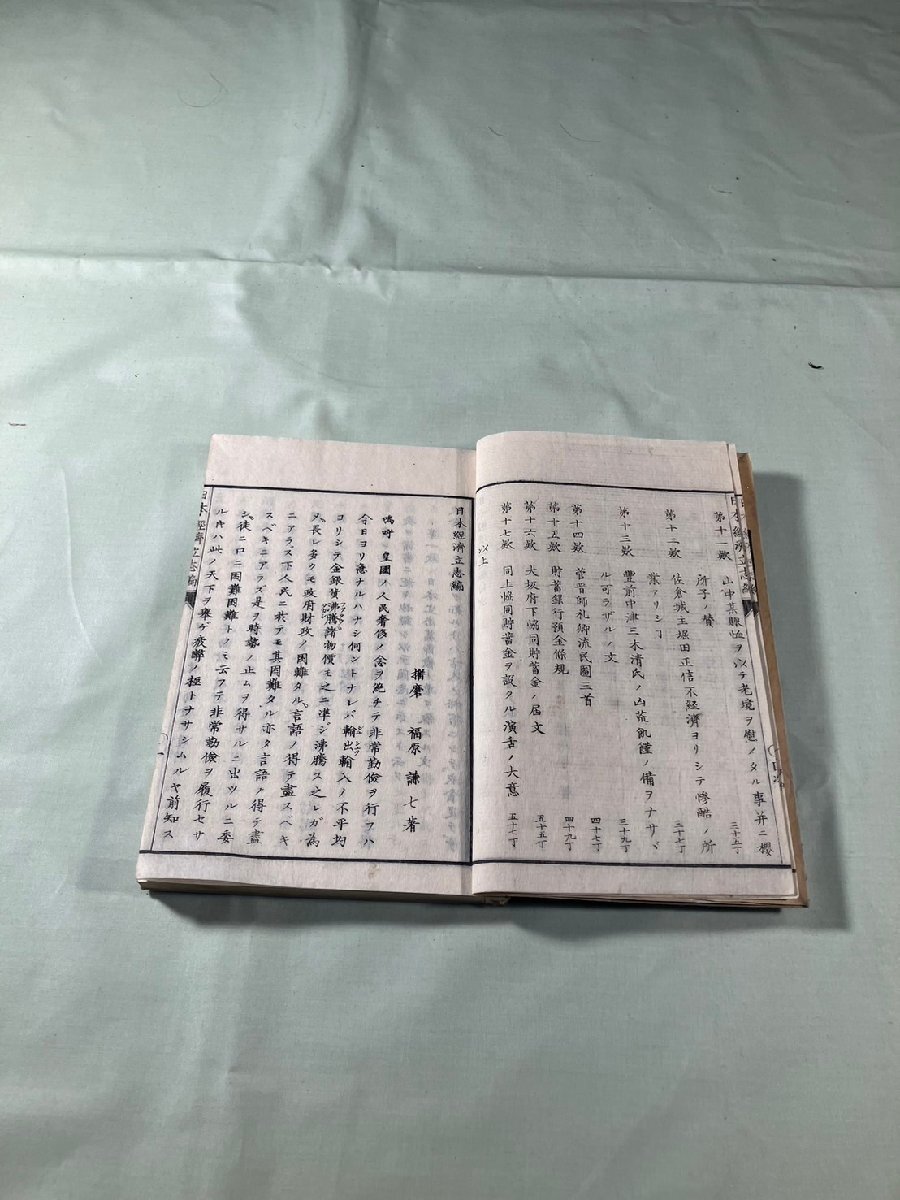 日本經濟立志編
第十一欸
山中某賑恤ヲ以テ老境ヲ慰メタル事并ニ櫻
所子ノ替
三十五丁
第十二欸
佐倉城主堀田正信不經濟ヨリシテ慘酷ノ所
業アリシヿ
三十七丁
第十三欸
豐前中津三木清氏ノ凶荒飢饉ノ備ヲナサヾ
ル可ラザルノ文
三十九丁
第十四欸
菅晋師礼卿流民圖二首
四十七丁
第十五欸
財蓄銀行預金條規
四十九丁
第十六欸
大坂府下協同財蓄金ノ届文
五十五丁
第十七欸
同上協同貯蓄金ヲ設タル演舌ノ大意
五十七丁
以上
日本經濟立志編
播磨 福原謙七著
嗚呼 皇國ノ人民奢侈ノ念ヲ絶チテ非常勤儉ヲ行フハ
今日ヨリ急ナルハナシ何ントナレバ輸出輸入ノ不平均
ヨリシテ金銀貨沸騰諸物價モ之ニ準シ沸騰ス之レガ為
メ長レ多クモ政府財政ノ困難タル言語ノ得テ盡スベキ
ニアラス下人民ニ於テモ其困難タル亦タ言語ノ得テ盡
スベキニアラズ是ヲ時勢ノ止ムヲ得サルニ出ツルニ委
シ徒ニ口ニ困難困難トノミ云フテ非常勤儉ヲ履行セサ
ルキハ此ノ天下ヲ擧ゲ救弊ノ極トナサシムルヤ前知ス
日本經濟立志編
一